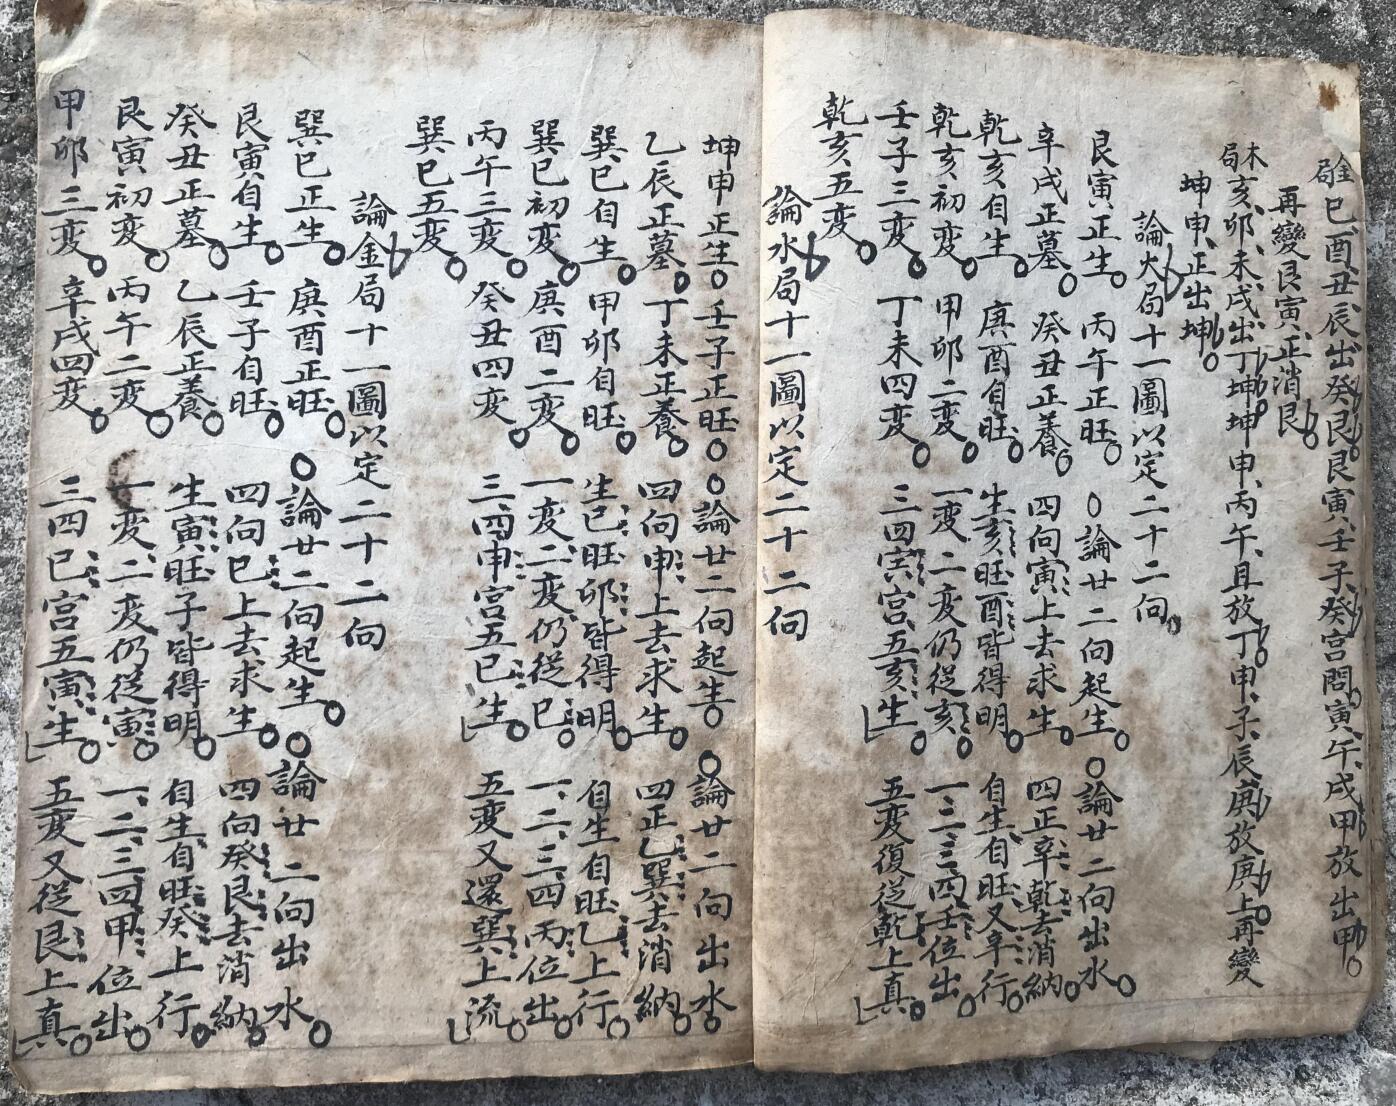 金局巳酉丑辰出癸艮艮寅壬子癸宮問寅午戌甲放出甲
再變艮寅正消艮
木局亥卯未戌出丁坤坤申丙午且放丁申子辰庚放庚上再變
坤申正出坤
論火局十一圖以定二十二向
艮寅正生 丙午正旺 論廿二向起生 論廿二向出水
辛戌正墓 癸丑正養 四向寅上去求生 四正辛乾去消納
乾亥自生 庚酉自旺 生亥旺酉皆得明 自生自旺又辛行
乾亥初变 甲卯二变 一变二变仍從亥 一二三四壬位出
壬子三变 丁未四变 三四寅宮五亥生 五变復從乾上真
乾亥五变
論水局十一圖以定二十二向
坤申正生 壬子正旺 論廿二向起生 論廿二向出水
乙辰正墓 丁未正養 四向申上去求生 四正乙巽去消納
巽巳自生 甲卯自旺 生巳旺卯皆得明 自生自旺乙上行
巽巳初变 庚酉二变 一变二变仍從巳 一二三四丙位出
丙午三变 癸丑四变 三四申宮五巳生 五变又還巽上流
巽巳五变
論金局十一圖以定二十二向
巽巳正生 庚酉正旺 論廿二向起生 論廿二向出水
艮寅自生 壬子自旺 四向巳上去求生 四向癸艮去消納
癸丑正墓 乙辰正養 生寅旺子皆得明 自生自旺癸上行
艮寅初变 丙午二变 一变二变仍從寅 一二三四甲位出
甲卯三变 辛戌四变 三四巳宮五寅生 五变又從艮上真